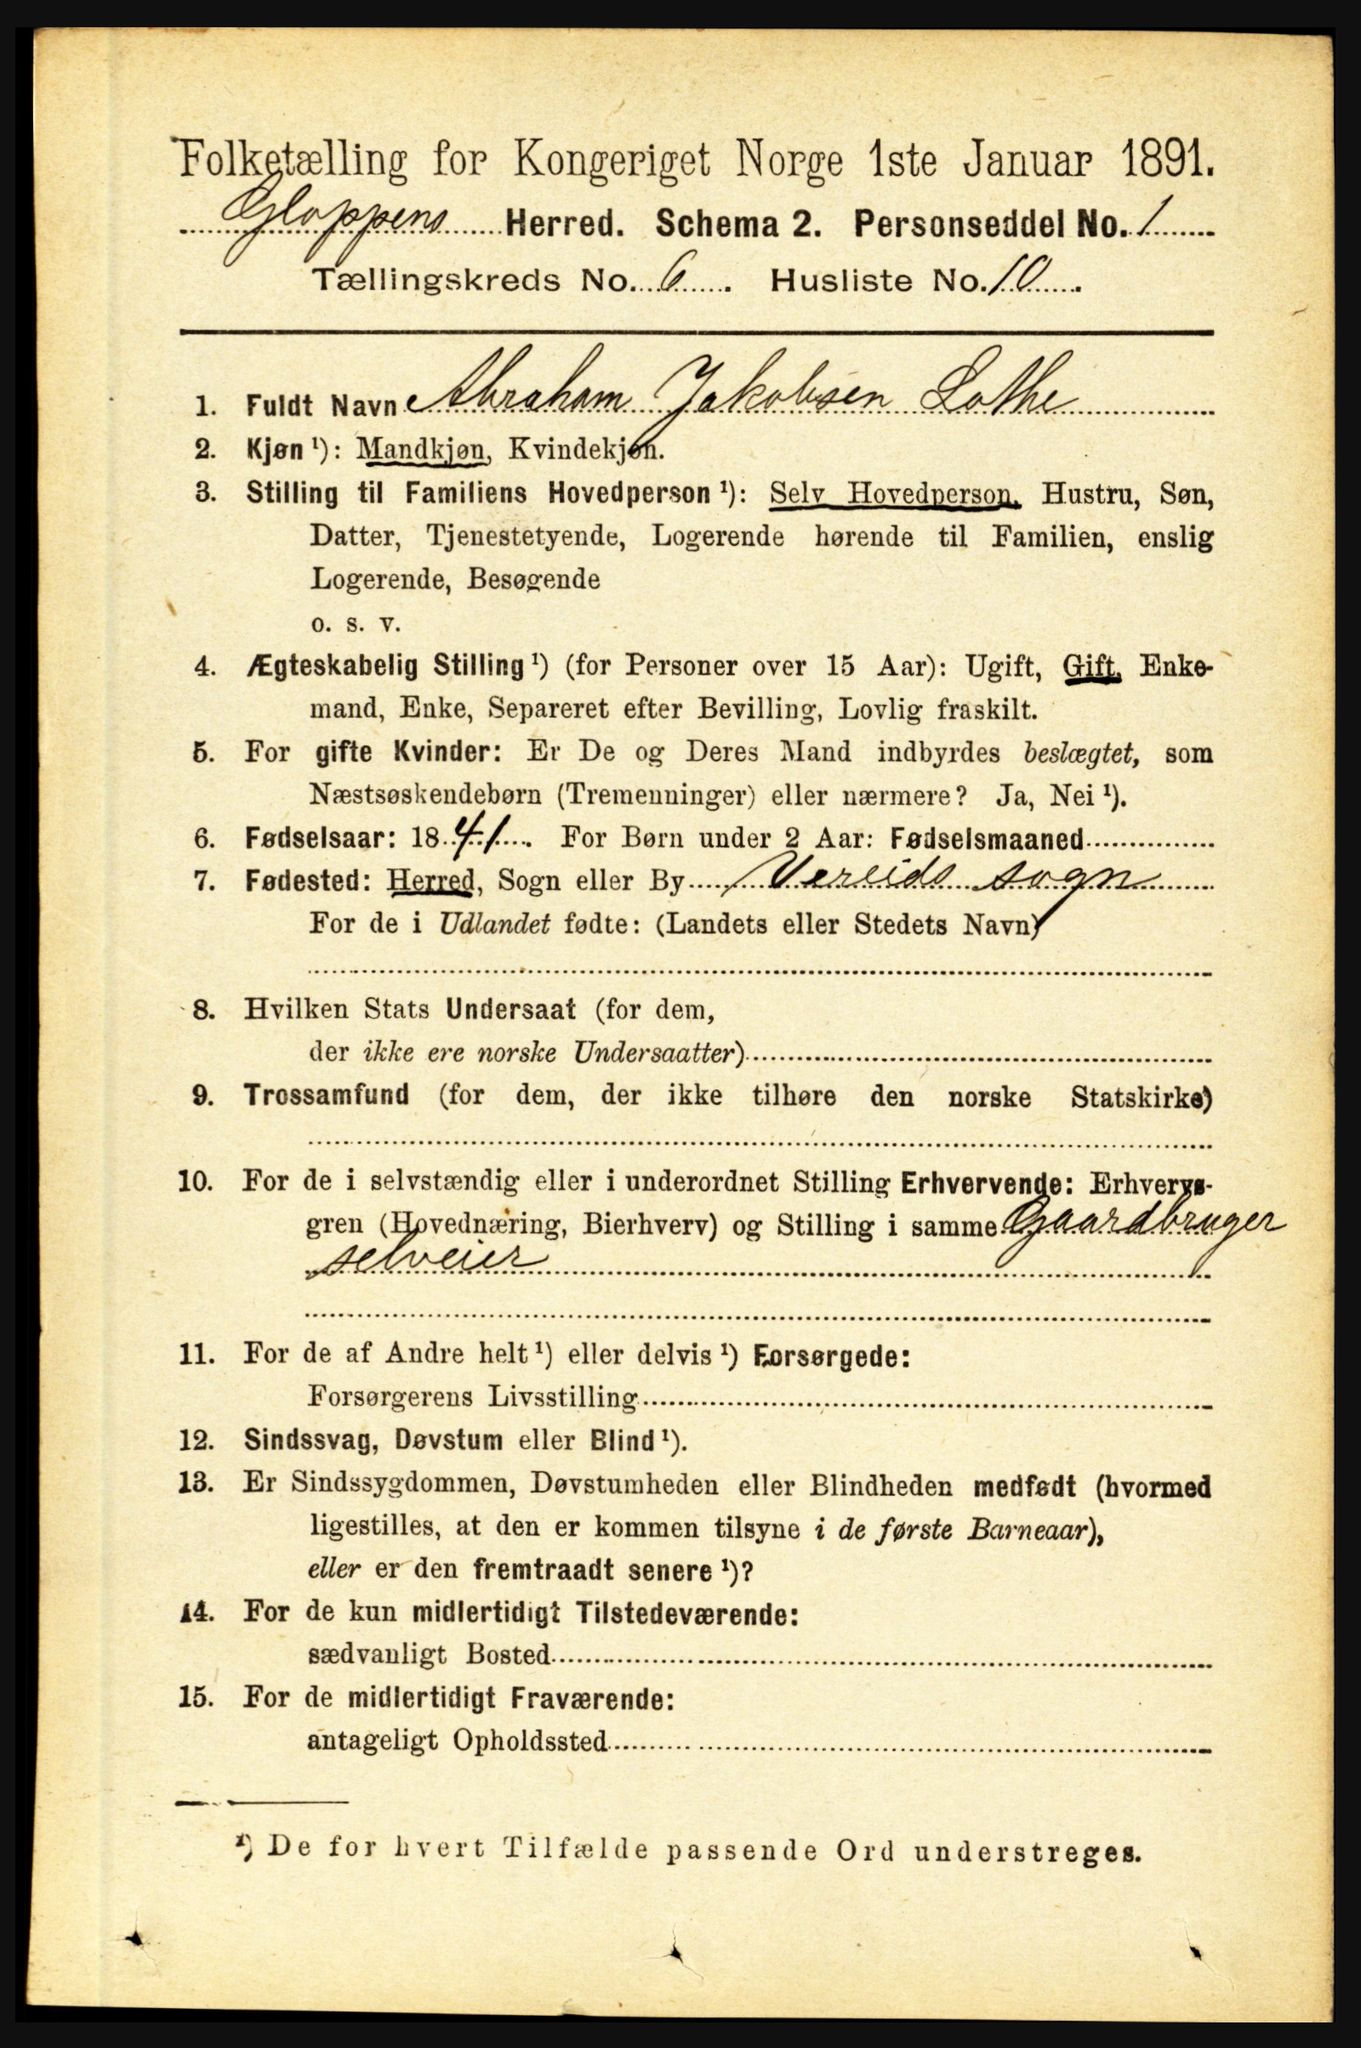 Folketælling for Kongeriget Norge 1ste Januar 1891.
Gloppens Herred. Schema 2. Personseddel No. 1
Tællingskreds No. 6. Husliste No. 10.
1. Fuldt Navn Abraham Jakobsen Lothe
2. Kjøn ¹): Mandkjøn, Kvindekjøn.
3. Stilling til Familiens Hovedperson ¹): Selv Hovedperson, Hustru, Søn,
Datter, Tjenestetyende, Logerende hørende til Familien, enslig
Logerende, Besøgende
o. s. v.
4. Ægteskabelig Stilling ¹) (for Personer over 15 Aar): Ugift, Gift, Enke-
mand, Enke, Separeret efter Bevilling, Lovlig fraskilt.
5. For gifte Kvinder: Er De og Deres Mand indbyrdes beslægtet, som
Næstsøskendebørn (Tremenninger) eller nærmere? Ja, Nei ¹).
6. Fødselsaar: 1841. For Børn under 2 Aar: Fødselsmaaned
7. Fødested: Herred, Sogn eller By Vereids sogn
For de i Udlandet fødte: (Landets eller Stedets Navn)
8. Hvilken Stats Undersaat (for dem,
der ikke ere norske Undersaatter)
9. Trossamfund (for dem, der ikke tilhøre den norske Statskirke)
10. For de i selvstændig eller i underordnet Stilling Erhvervende: Erhvervs-
gren (Hovednæring, Bierhverv) og Stilling i samme Gaardbruger
selveier
11. For de af Andre helt ¹) eller delvis ¹) Forsørgede:
Forsørgerens Livsstilling
12. Sindssvag, Døvstum eller Blind ¹).
13. Er Sindssygdommen, Døvstumheden eller Blindheden medfødt (hvormed
ligestilles, at den er kommen tilsyne i de første Barneaar),
eller er den fremtraadt senere ¹)?
14. For de kun midlertidigt Tilstedeværende:
sædvanligt Bosted
15. For de midlertidigt Fraværende:
antageligt Opholdssted
¹) De for hvert Tilfælde passende Ord understreges.